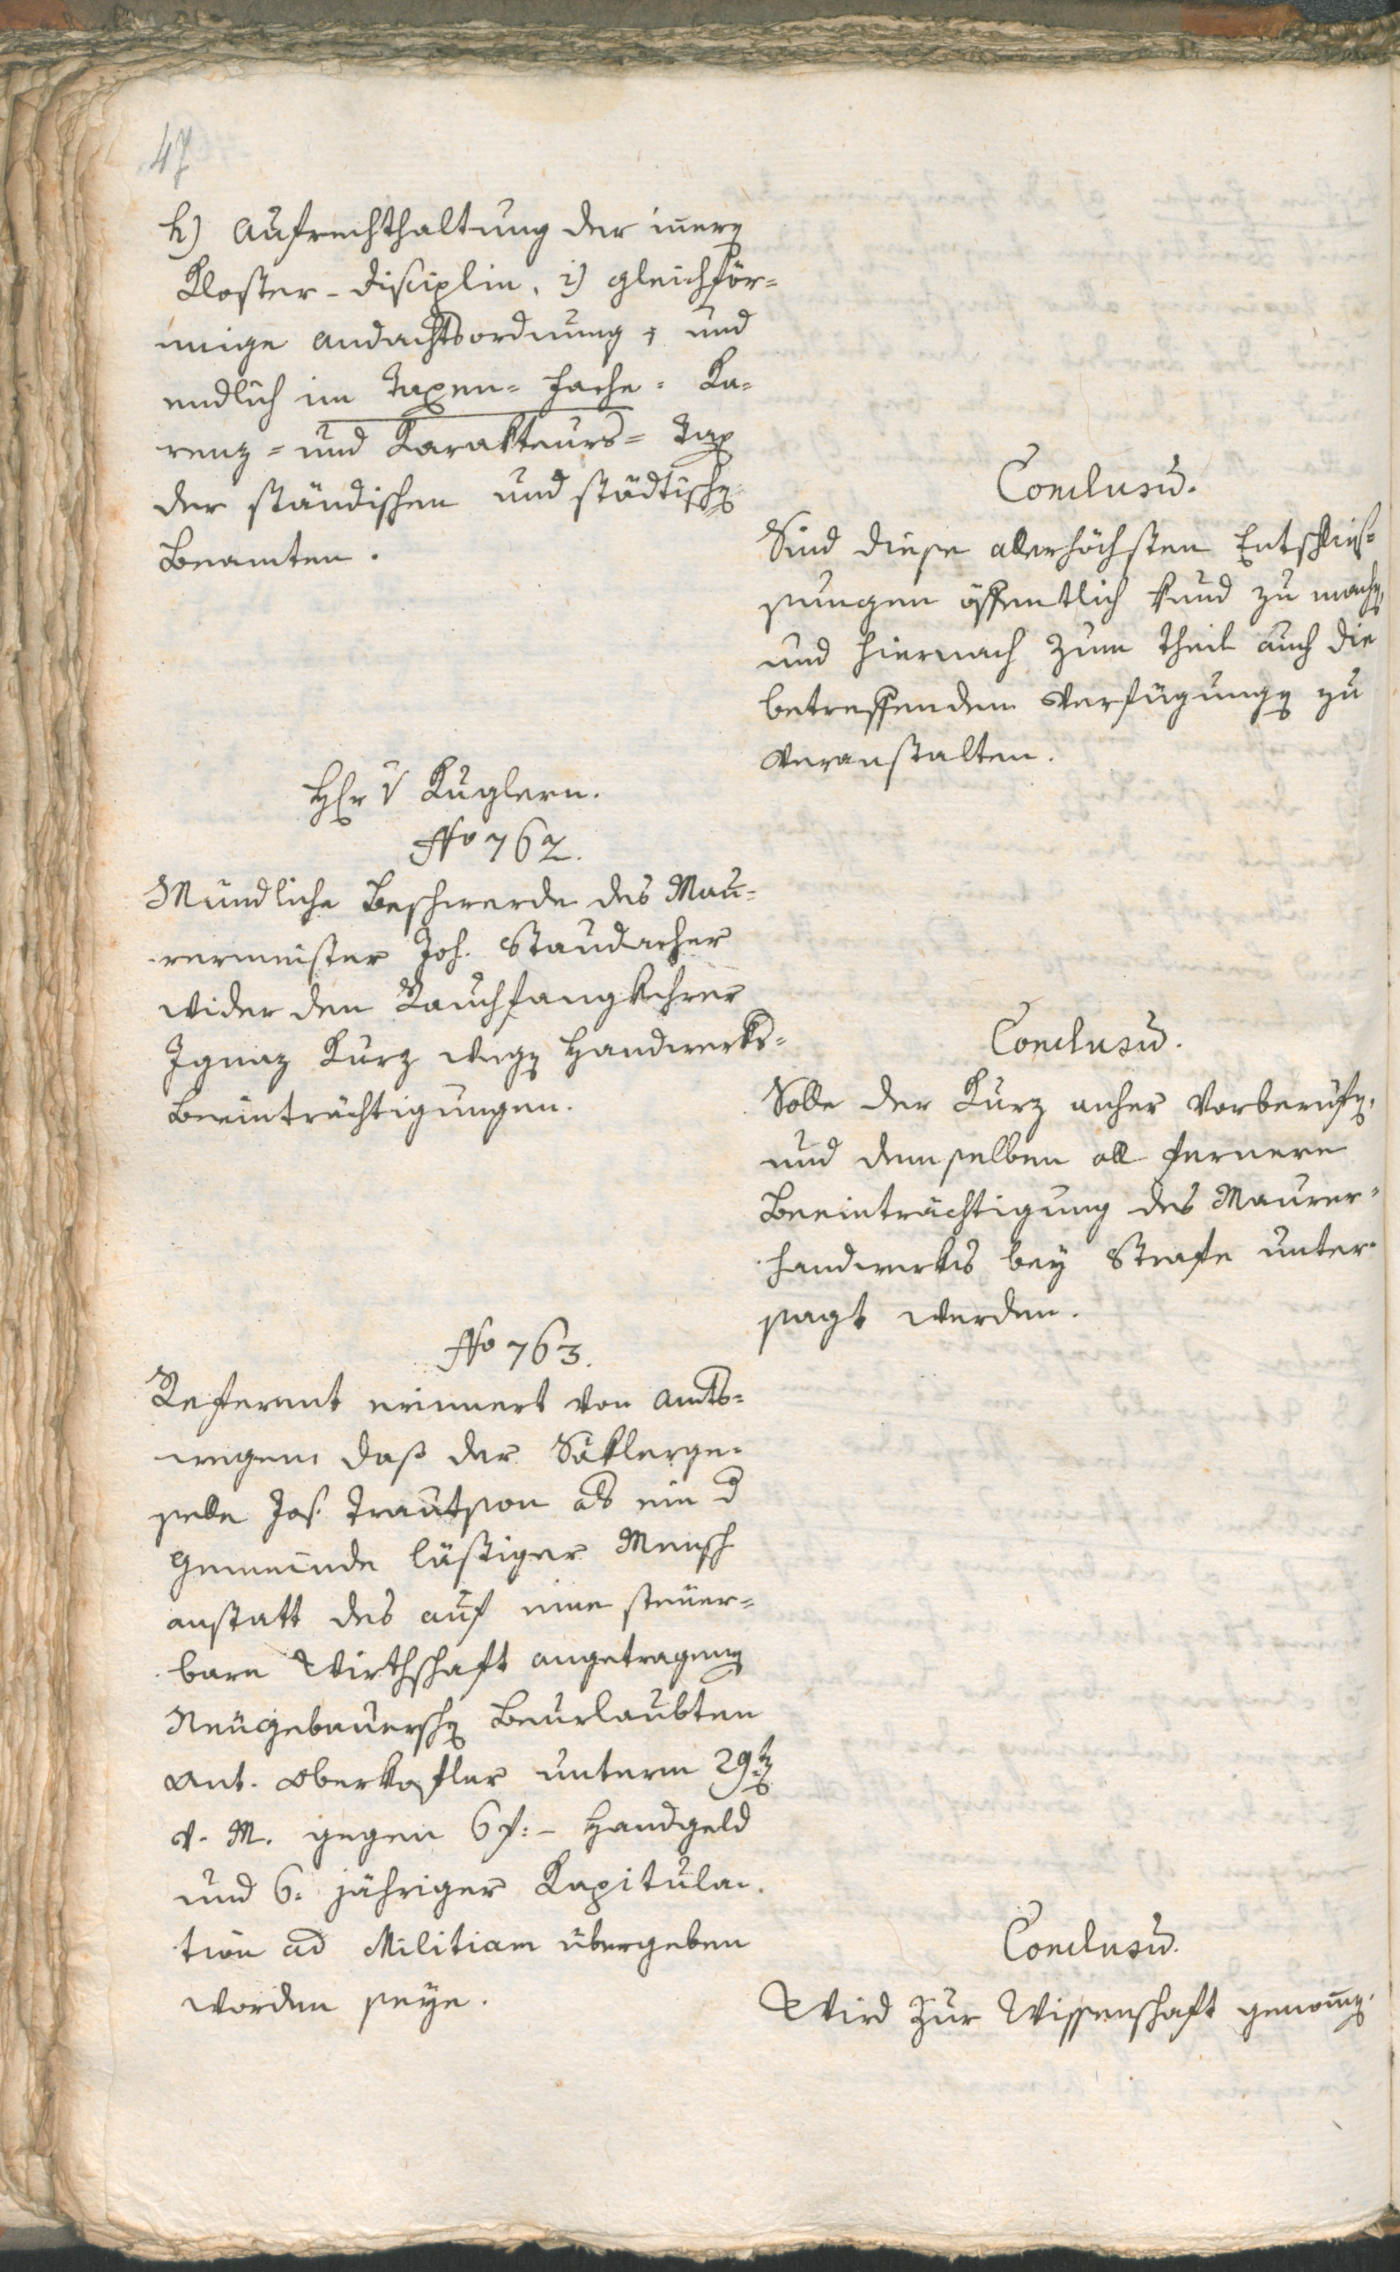 47
h) Aufrechthaltung der innern
Kloster-Disciplin. i) gleichför-
mige Andachtsordnung, und
endlich im Taxen-Fache. Ka-
renz- und Karakteurs-Tax
der ständischen und städtischen
Beamten.
Conclusum.
Sind diese allerhöchsten Entschlies-
sungen öffentlich kund zu machen,
und hiernach zum Theil auch die
betreffenden Verfügungen zu
veranstalten.
Hr v Kuglern.
No 762.
Mündliche Beschwerde des Mau-
rermeister Joh. Staudacher
wider den Rauchfangkehrer
Ignaz Kurz wegen Handwerks-
Beeinträchtigungen.
Conclusum.
Solle der Kurz anher vorberufen,
und demselben all fernere
Beeinträchtigung des Maurer-
handwerks bey Strafe unter-
sagt werden.
No 763.
Referent erinnert von Amts-
wegen daß der Säklerge-
selle Jos. Trautson als ein d
Gemeinde lästiger Mensch
anstatt des auf eine steuer-
bare Wirthschaft angetragenen
Neugebauerschen Beurlaubten
Ant. Oberkofler unterm 29ten
v. M. gegen 6 f:- Handgeld
und 6. jähriger Kapitula-
tion ad Militiam übergeben
worden seye.
Conclusum.
Wird zur Wissenschaft genommen.